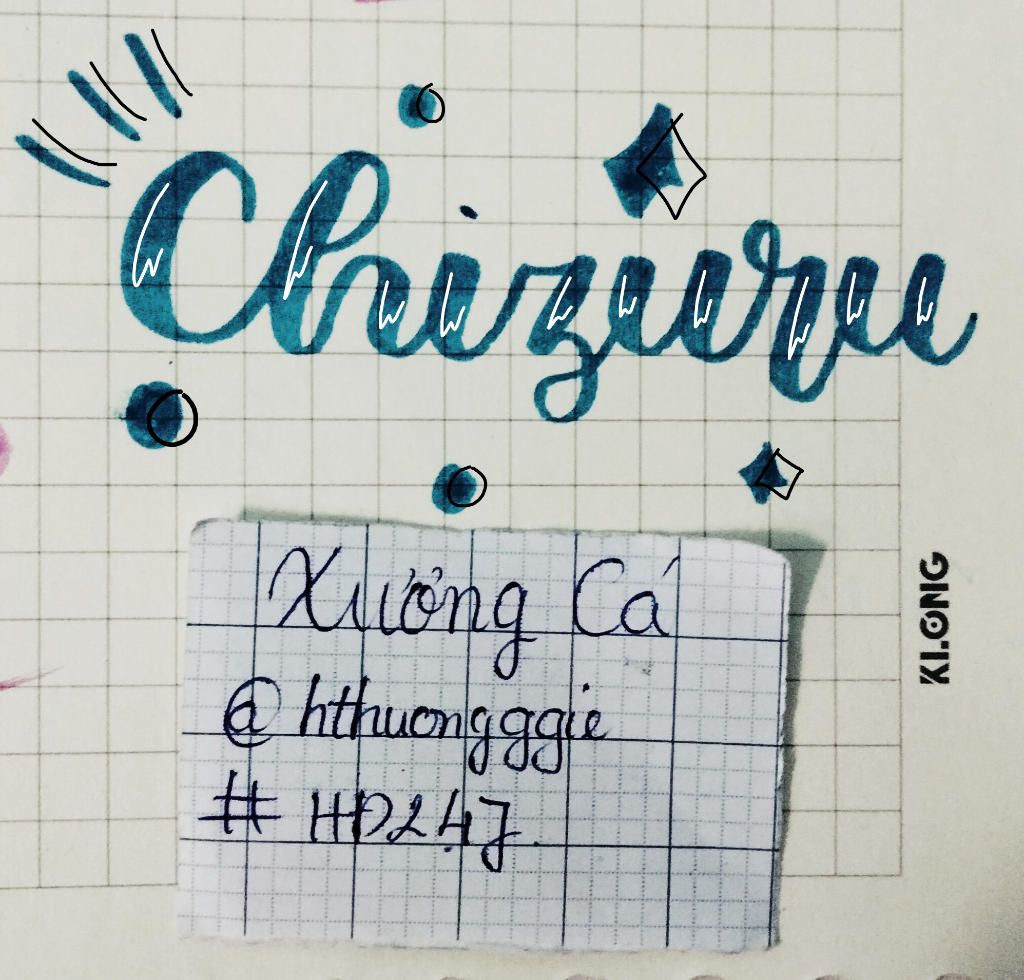 Chizuru
Xương Cá
@hthuongggie
# HD247
KLONG